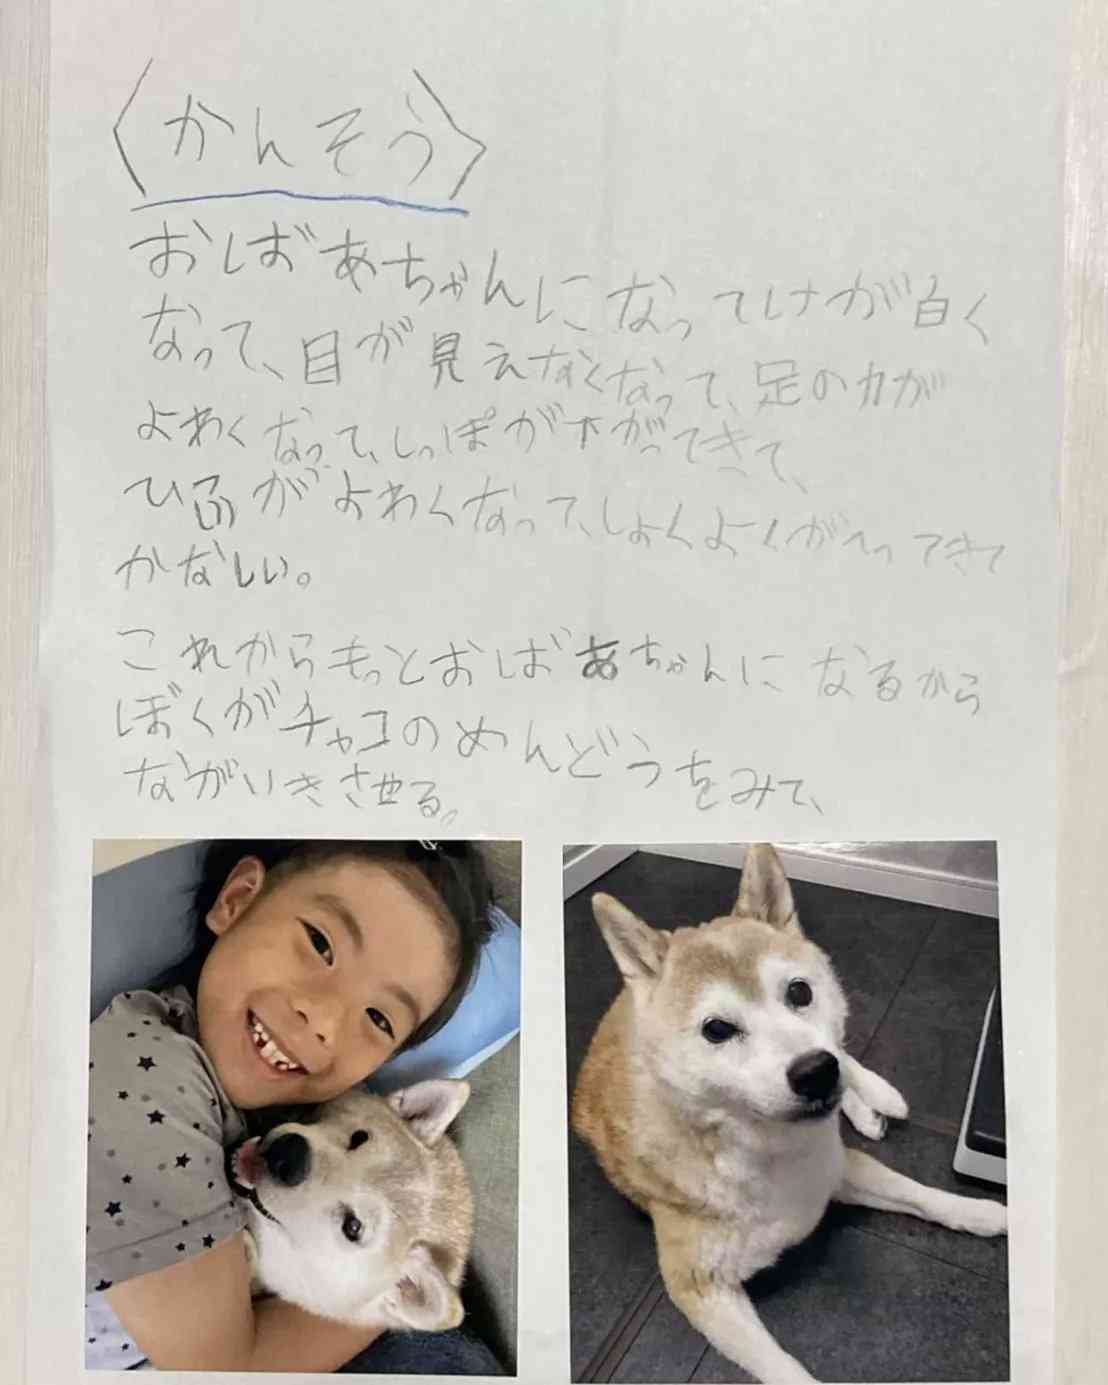 〈かんそう〉
おしばあちゃんになってけが白く
なって、目が見えなくなって、足の力が
よわくなって、しっぽが下がってきて、
ひふがよわくなって、しょくよくがへってきて
かなしい。
これからもっとおしばあちゃんになるから
ぼくがチャコのめんどうをみて、
ながいきさせる。